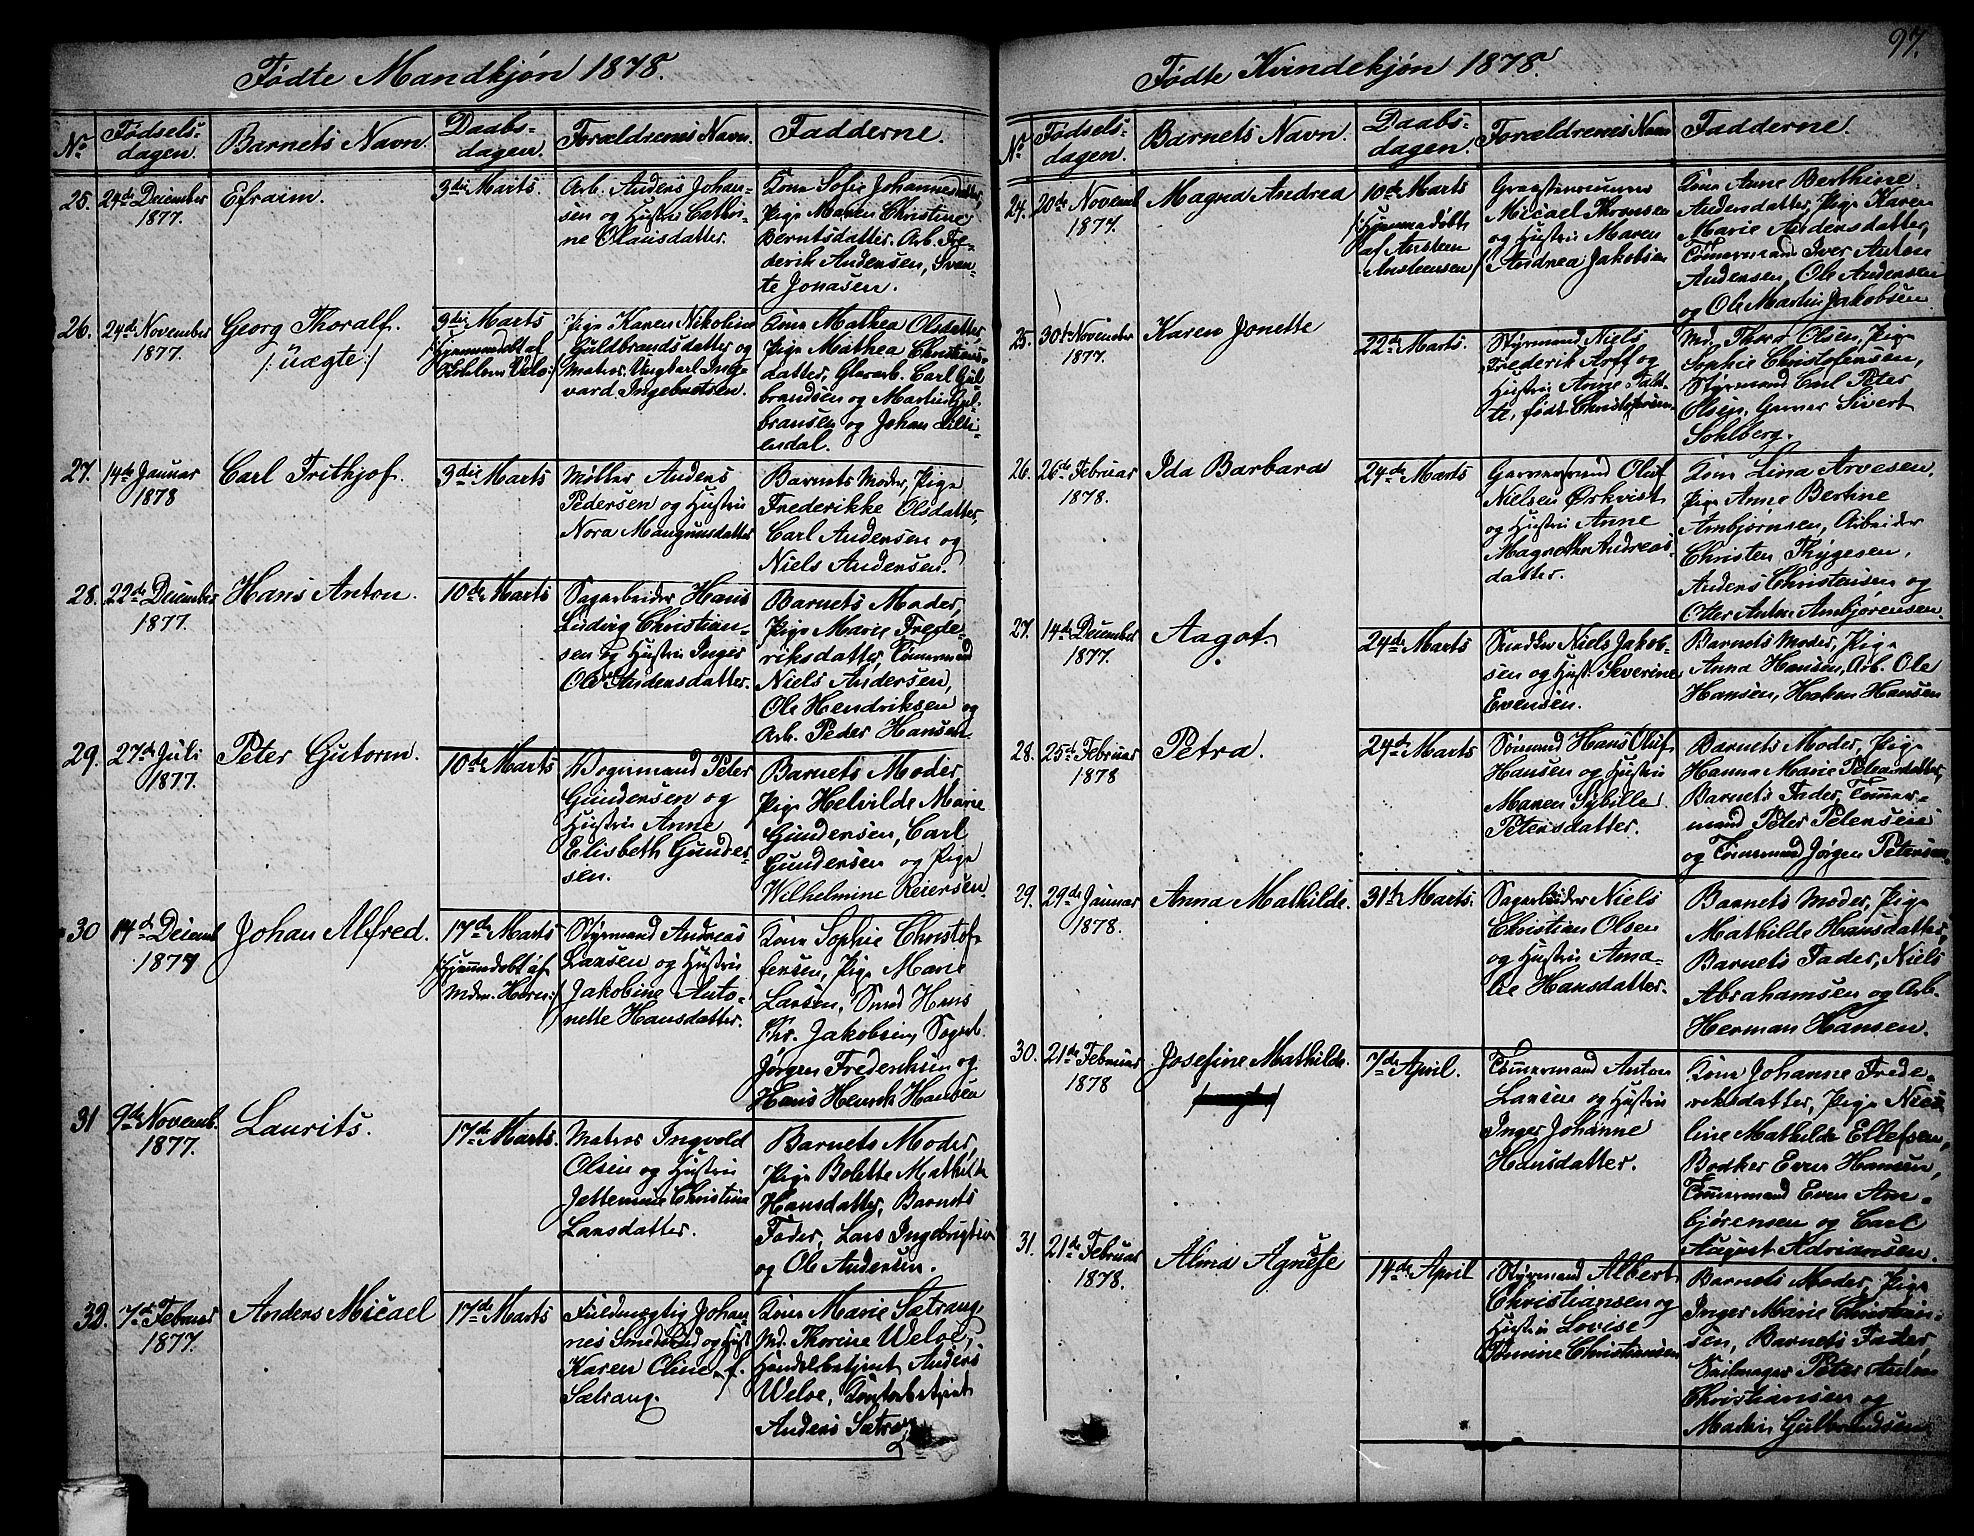 97.
Fødte Mandkjøn 1878.
No
Fødsels-
dagen.
Barnets Navn.
Daabs-
dagen.
Forældrenes Navn.
Fadderne.
25.
24de December
1877.
Efraim.
3die Marts.
Arb. Anders Johan-
sen og Hustru Cathri-
ne Olausdatter.
Kone Sofie Johannesdatter,
Pige Maren Christine
Berntsdatter. Arb. Fre-
derik Andersen, Svan-
te Jonasen.
26.
24de November
1877.
Georg Thoralf.
/: uægte :/
3die Marts
/: Hjemmedøbt af
Pige Karen Nikoline
Guldbrandsdatter og
Matros
vard Ingebretsen.
Kone Mathea Olsdatter,
Pige Mathea Christians-
datter, Glasarb. Carl Gul-
brandsen og Martin Gul-
bransen og Johan Lilli-
endal.
27.
14de Januar
1878
Carl Frithjof.
3die Marts
Møller Anders
Pedersen og Hustru
Nora Mangnusdatter
Barnets Moder, Pige
Frederikke Olsdatter,
Carl Andersen og
Niels Andersen.
28.
22de December
1877.
Hans Anton.
10de Marts
Sagarbeider Hans
Ludvig Christian-
sen og Hustru Inger
Olea Andersdatter.
Barnets Moder,
Pige Marie Frede-
riksdatter, Tømmermand
Niels Andersen,
Ole Hendriksen og
Arb. Peder Hansen
29.
27de Juli
1877.
Peter Gutorm.
10de Marts
Vognmand Peter
Gundersen og
Hustru Anne
Elisbeth Gunder-
sen.
Barnets Moder,
Pige Helvilde Marie
Gundersen, Carl
Gundersen og Pige
Wilhelmine Reiersen
30
14de Decemb
1877
Johan Alfred.
17de Marts
/: Hjemmedøbt af
Mdm. Horn :/
Styrmand Andreas
Larsen og Hustru
Jakobine Anto-
nette Hansdatter.
Kone Sophie Christof-
fersen, Pige Marie
Larsen, Smed Hans
Chr. Jakobsen, Sagarb.
Jørgen Frederiksen og
Hans Henrik Hansen
31
9de Novemb.
1877.
Laurits.
17de Marts.
Matros Ingvold
Olsen og Hustru
Jettemine Christine
Larsdatter.
Barnets Moder,
Pige Bolette Mathilde
Hansdatter, Barnets
Fader, Lars Ingebrigtsen
og Ole Andersen.
32.
7de Februar
1877.
Anders Micael
17de Marts
Fuldmægtig Johan-
nes Smedsrud og Hust
Karen Oline, f.
Sætrang.
Kone Marie Sætrang,
Md. Thorine Weloe,
Handelsbetjent Anders
Weloe, Contorbetjent
Anders Sætrang
Fødte Kvindekjøn 1878.
No
Fødsels-
dagen.
Barnets Navn.
Daabs-
dagen.
Forældrenes Navn
Fadderne.
24.
20de Novemb
1877.
Magna Andrea
10de Marts
/: Hjemmedøbt
af Ansteen
Ansteensen :/
Micael Thronsen
og Hustru Maren
Andrea Jakobsen
Kone Anne Berthine
Andersdatter, Pige Karen
Marie Andersdatter,
Tømmermand Iver Anton
Andersen, Ole Andersen
og Ole Martin Jakobsen
25.
30te November
1877.
Karen Jonette
22de Marts.
Styrmand Niels
Frederik Arff og
Hustru Anne
født Christofersen
Md. Thora Olsen, Pige
Sophie Christofersen,
Styrmand Carl Peter
Olsen, Garver Sivert
Sohlberg.
26.
26de Februar
1878.
Ida Barbara
24de Marts
Garversvend Oluf
Nielsen Ørkvist
og Hustru Anne
Magrethe Andreas-
datter.
Kone Lina Arvesen.
Pige Anne Bertine
Arnbjørnsen, Arbeider
Christen Thygesen,
Anders Christensen og
Otter Anton Arnbjørensen.
27.
14de December
1877.
Aagot.
24de Marts
Snedker Niels Jakob-
sen og Hust. Severine
Evensen.
Barnets Moder, Pige
Anna Hansen, Arb. Ole
Hansen, Haken Hansen
28.
25de Februar
1878
Petra.
24de Marts
Sømand Hans Oluf
Hansen og Hustru
Maren Sybille
Petersdatter.
Barnets Moder, Pige
Hanna Marie Petersdatter,
Barnets Fader, Tømmer-
mand Peter Petersen
og Tømmermand Jørgen Petersen.
29.
29de Januar
1878.
Anna Mathilde.
31te Marts.
Sagarbeider Niels
Christian Olsen
og Hustru Ama-
lie Hansdatter.
Barnets Moder, Pige
Mathilde Hansdatter,
Barnets Fader, Niels
Abrahamsen og Arb.
Herman Hansen.
30.
21de Februar
1878
Josefine Mathilde.
7de April.
Tømmermand Anton
Larsen og Hustru
Inger Johanne
Hansdatter.
Kone Johanne Frede-
riksdatter, Pige Nico-
line Mathilde Ellefsen,
Bødker Even Hansen,
Tømmermand Even Arn-
bjørensen og Carl
August Adriansen.
31.
21de Februar
1878.
Alvid Agneste
14de April
Styrmand Albert
Christiansen og
Hustru Lovise
Tomine Christiansen
Barnets Moder, Pige
Inger Marie Christian-
sen, Barnets Fader,
Seilmager Peter Anton
Christiansen og
Martin Gulbrandsen